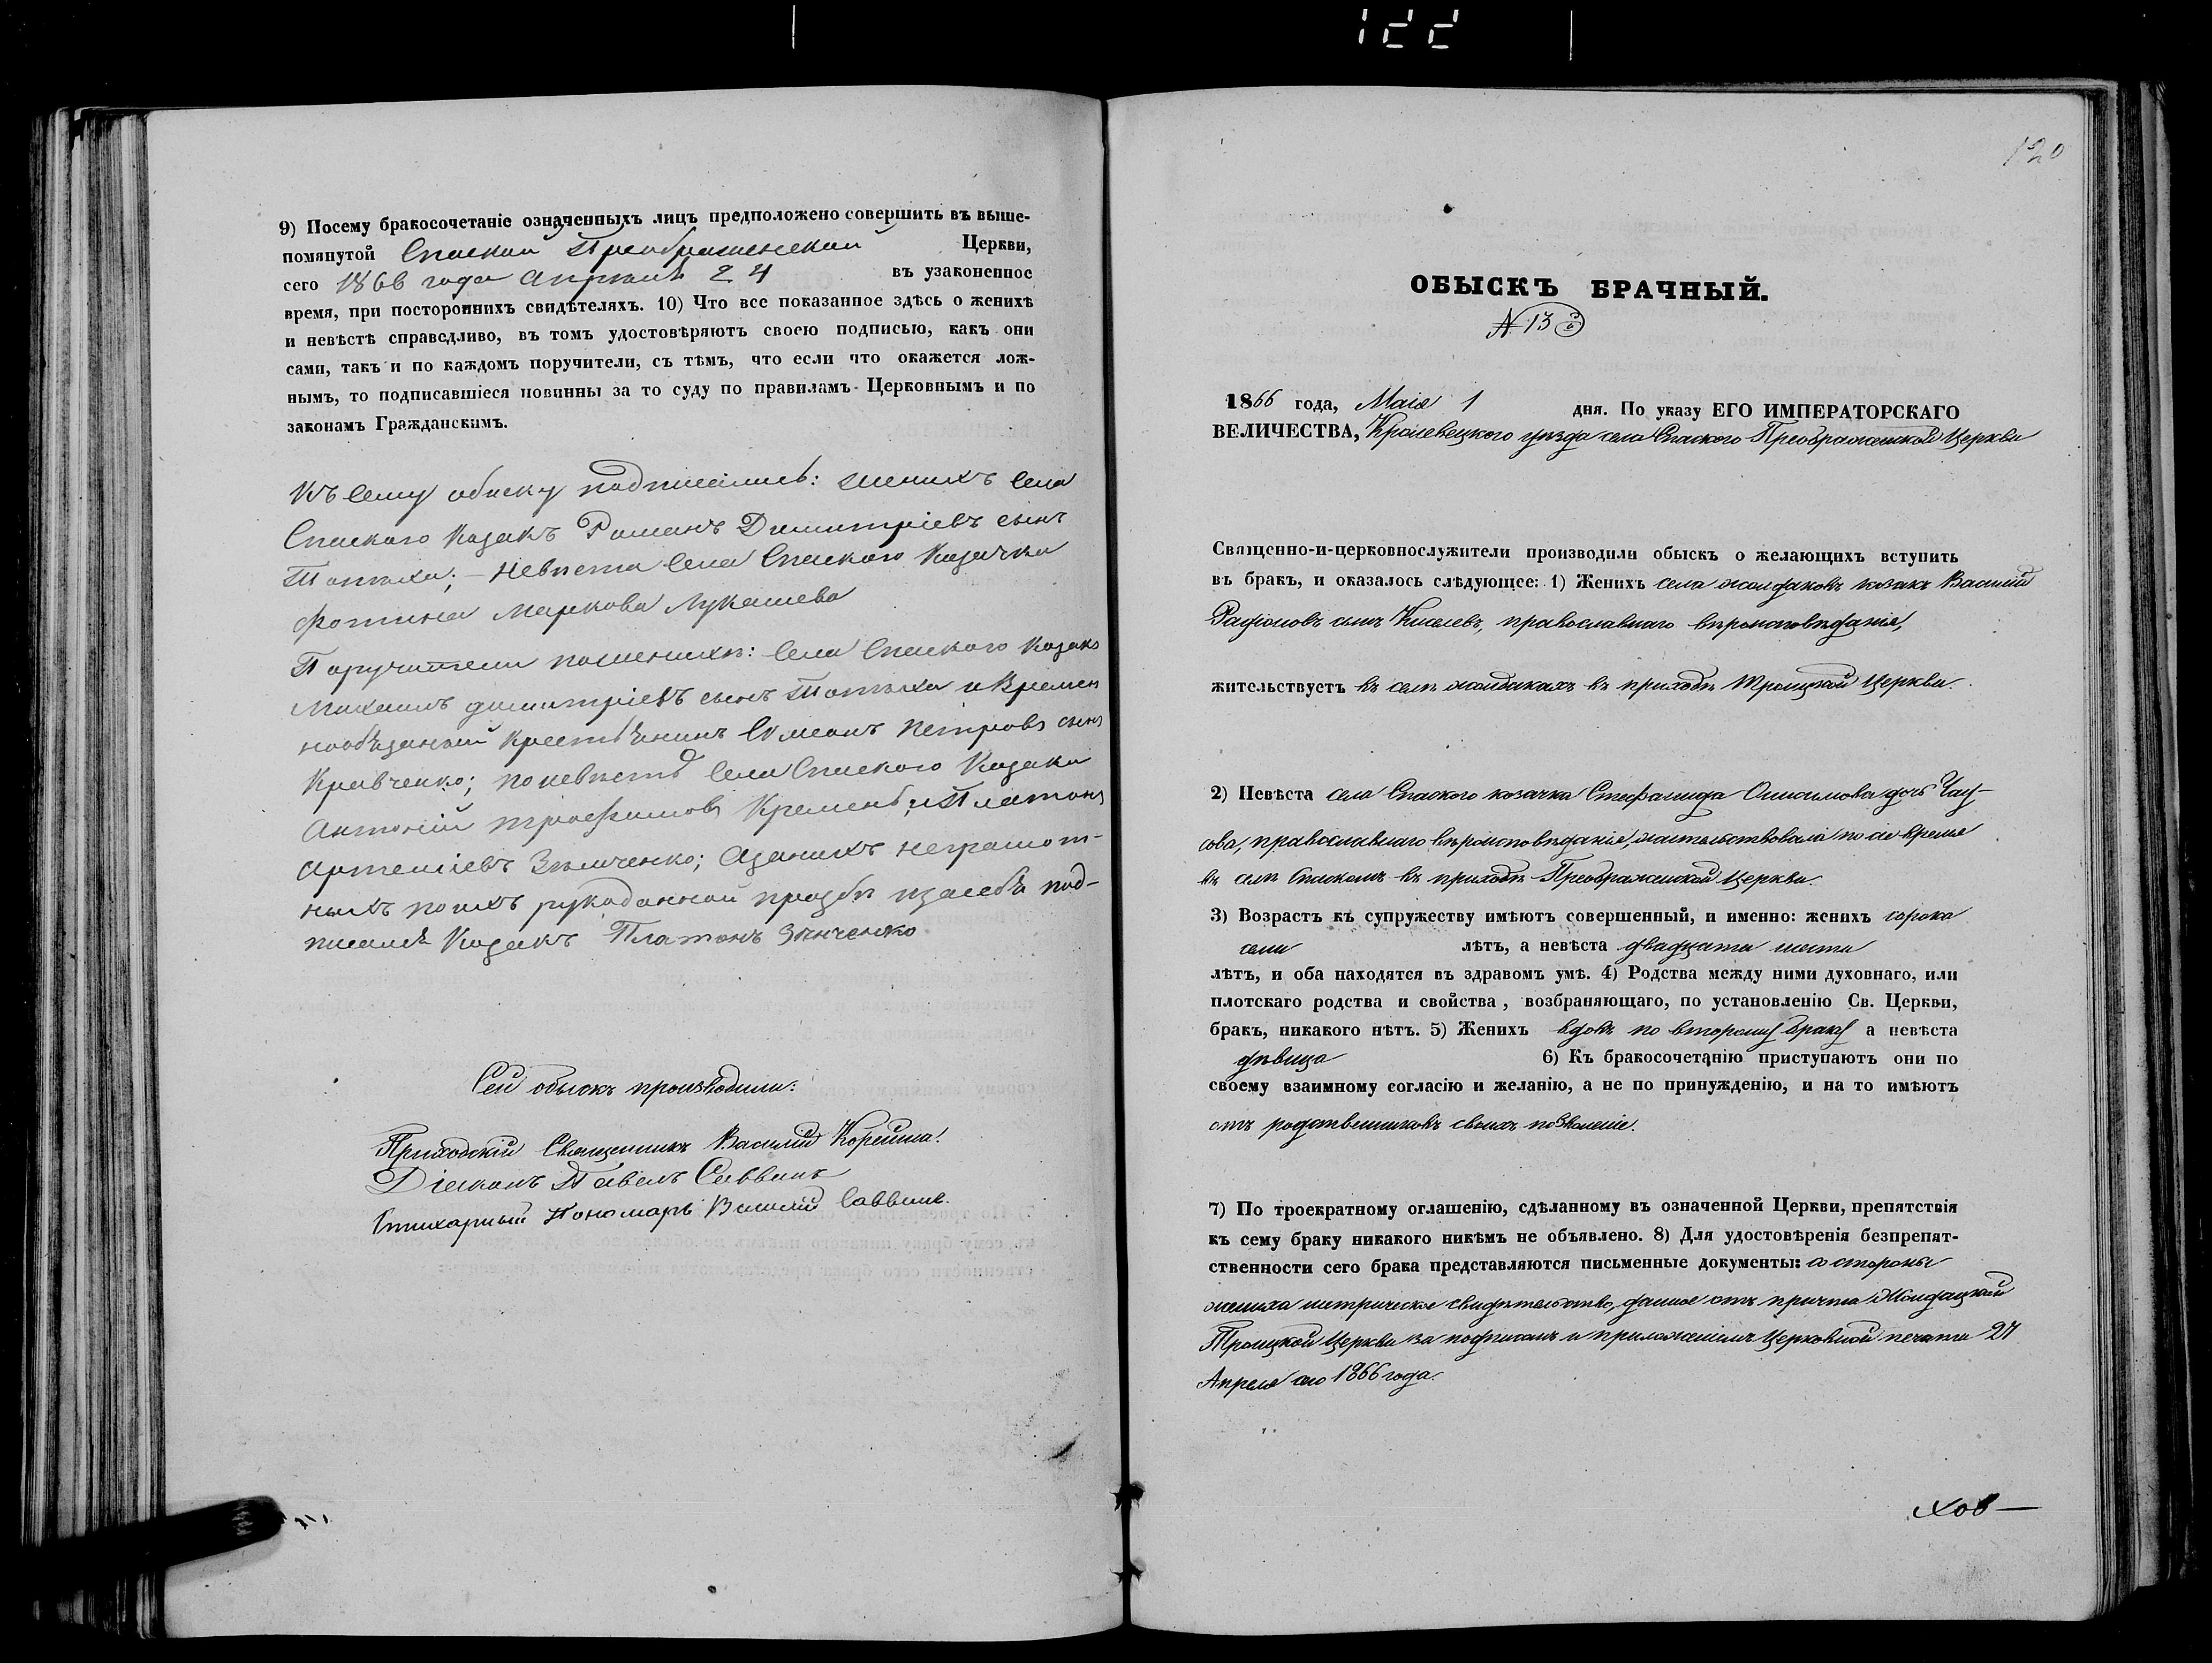 122
9) Посему бракосочетаніе означенныхъ лицъ предположено совершить въ выше-
помянутой Спаской Преображенской Церкви,
сего 1866 года Апреля 24 въ узаконенное
время, при постороннихъ свидѣтеляхъ. 10) Что все показанное здѣсь о женихѣ
и невѣстѣ справедливо, въ томъ удостовѣряютъ своею подписью, какъ они
сами, такъ и по каждомъ поручители, съ тѣмъ, что если что окажется лож-
нымъ, то подписавшіеся повинны за то суду по правиламъ Церковнымъ и по
законамъ Гражданскимъ.
Къ сему обыску подписались: женихъ села
Спаского Козакъ Романъ Димитріевъ сынъ
невѣста села Спаского Козачка
Фотина Маркова Лукашева
Поручители по женихѣ: села Спаского Козакъ
Михаилъ Димитріевъ сынъ и Времен
нообязаный Крестьянинъ Симеонъ Петровъ сынъ
Кравченко; по невѣстѣ села Спаского Козаки
Антоній Трофимовъ Кремень, и Платонъ
Артеміевъ Зѣнченко; а за нихъ неграмот-
ныхъ по ихъ рукоданной прозбѣ и за себя под-
писался Козакъ Платонъ Зѣнченко
Сей обыскъ производили:
Приходскій Священникъ Василій Корейша.
Діяконъ Павелъ Саввинъ
Стихарный Пономарь Василій Саввинъ.
120
ОБЫСКЪ БРАЧНЫЙ.
№ 13
1866 года, Маія 1 дня. По указу ЕГО ИМПЕРАТОРСКАГО
ВЕЛИЧЕСТВА, Кролевецкого уѣзда села Спаского Преображенской Церкви
Священно-и-церковнослужители производили обыскъ о желающихъ вступить
въ бракъ, и оказалось слѣдующее: 1) Женихъ села Жолдаковъ козакъ Василій
сынъ Киселевъ, православнаго вѣроисповѣданія,
жительствуетъ въ селѣ Жолдакахъ въ приходѣ Троицкой Церкви.
2) Невѣста села Спаского козачка Стефанида Онисимова дочь Чау-
сова, православнаго вѣроисповѣданія, жительствовала по сіе время
въ селѣ Спаскомъ въ приходѣ Преображенской Церкви.
3) Возрастъ къ супружеству имѣютъ совершенный, и именно: женихъ сорока
семи лѣтъ, а невѣста двадцати шести
лѣтъ, и оба находятся въ здравомъ умѣ. 4) Родства между ними духовнаго, или
плотскаго родства и свойства, возбраняющаго, по установленію Св. Церкви,
бракъ, никакого нѣтъ. 5) Женихъ вдовъ по второму браку а невѣста
дѣвица 6) Къ бракосочетанію приступаютъ они по
своему взаимному согласію и желанію, а не по принужденію, и на то имѣютъ
отъ родственниковъ своихъ позволеніе.
7) По троекратному оглашенію, сдѣланному въ означенной Церкви, препятствія
къ сему браку никакого никѣмъ не объявлено. 8) Для удостовѣренія безпрепят-
ственности сего брака представляются письменные документы: со стороны
жениха метрическое свидѣтельство, данное отъ причта Жолдацкой
Троицкой Церкви за подписомъ и приложеніемъ Церковной печати 27
Апреля сего 1866 года.
хов—